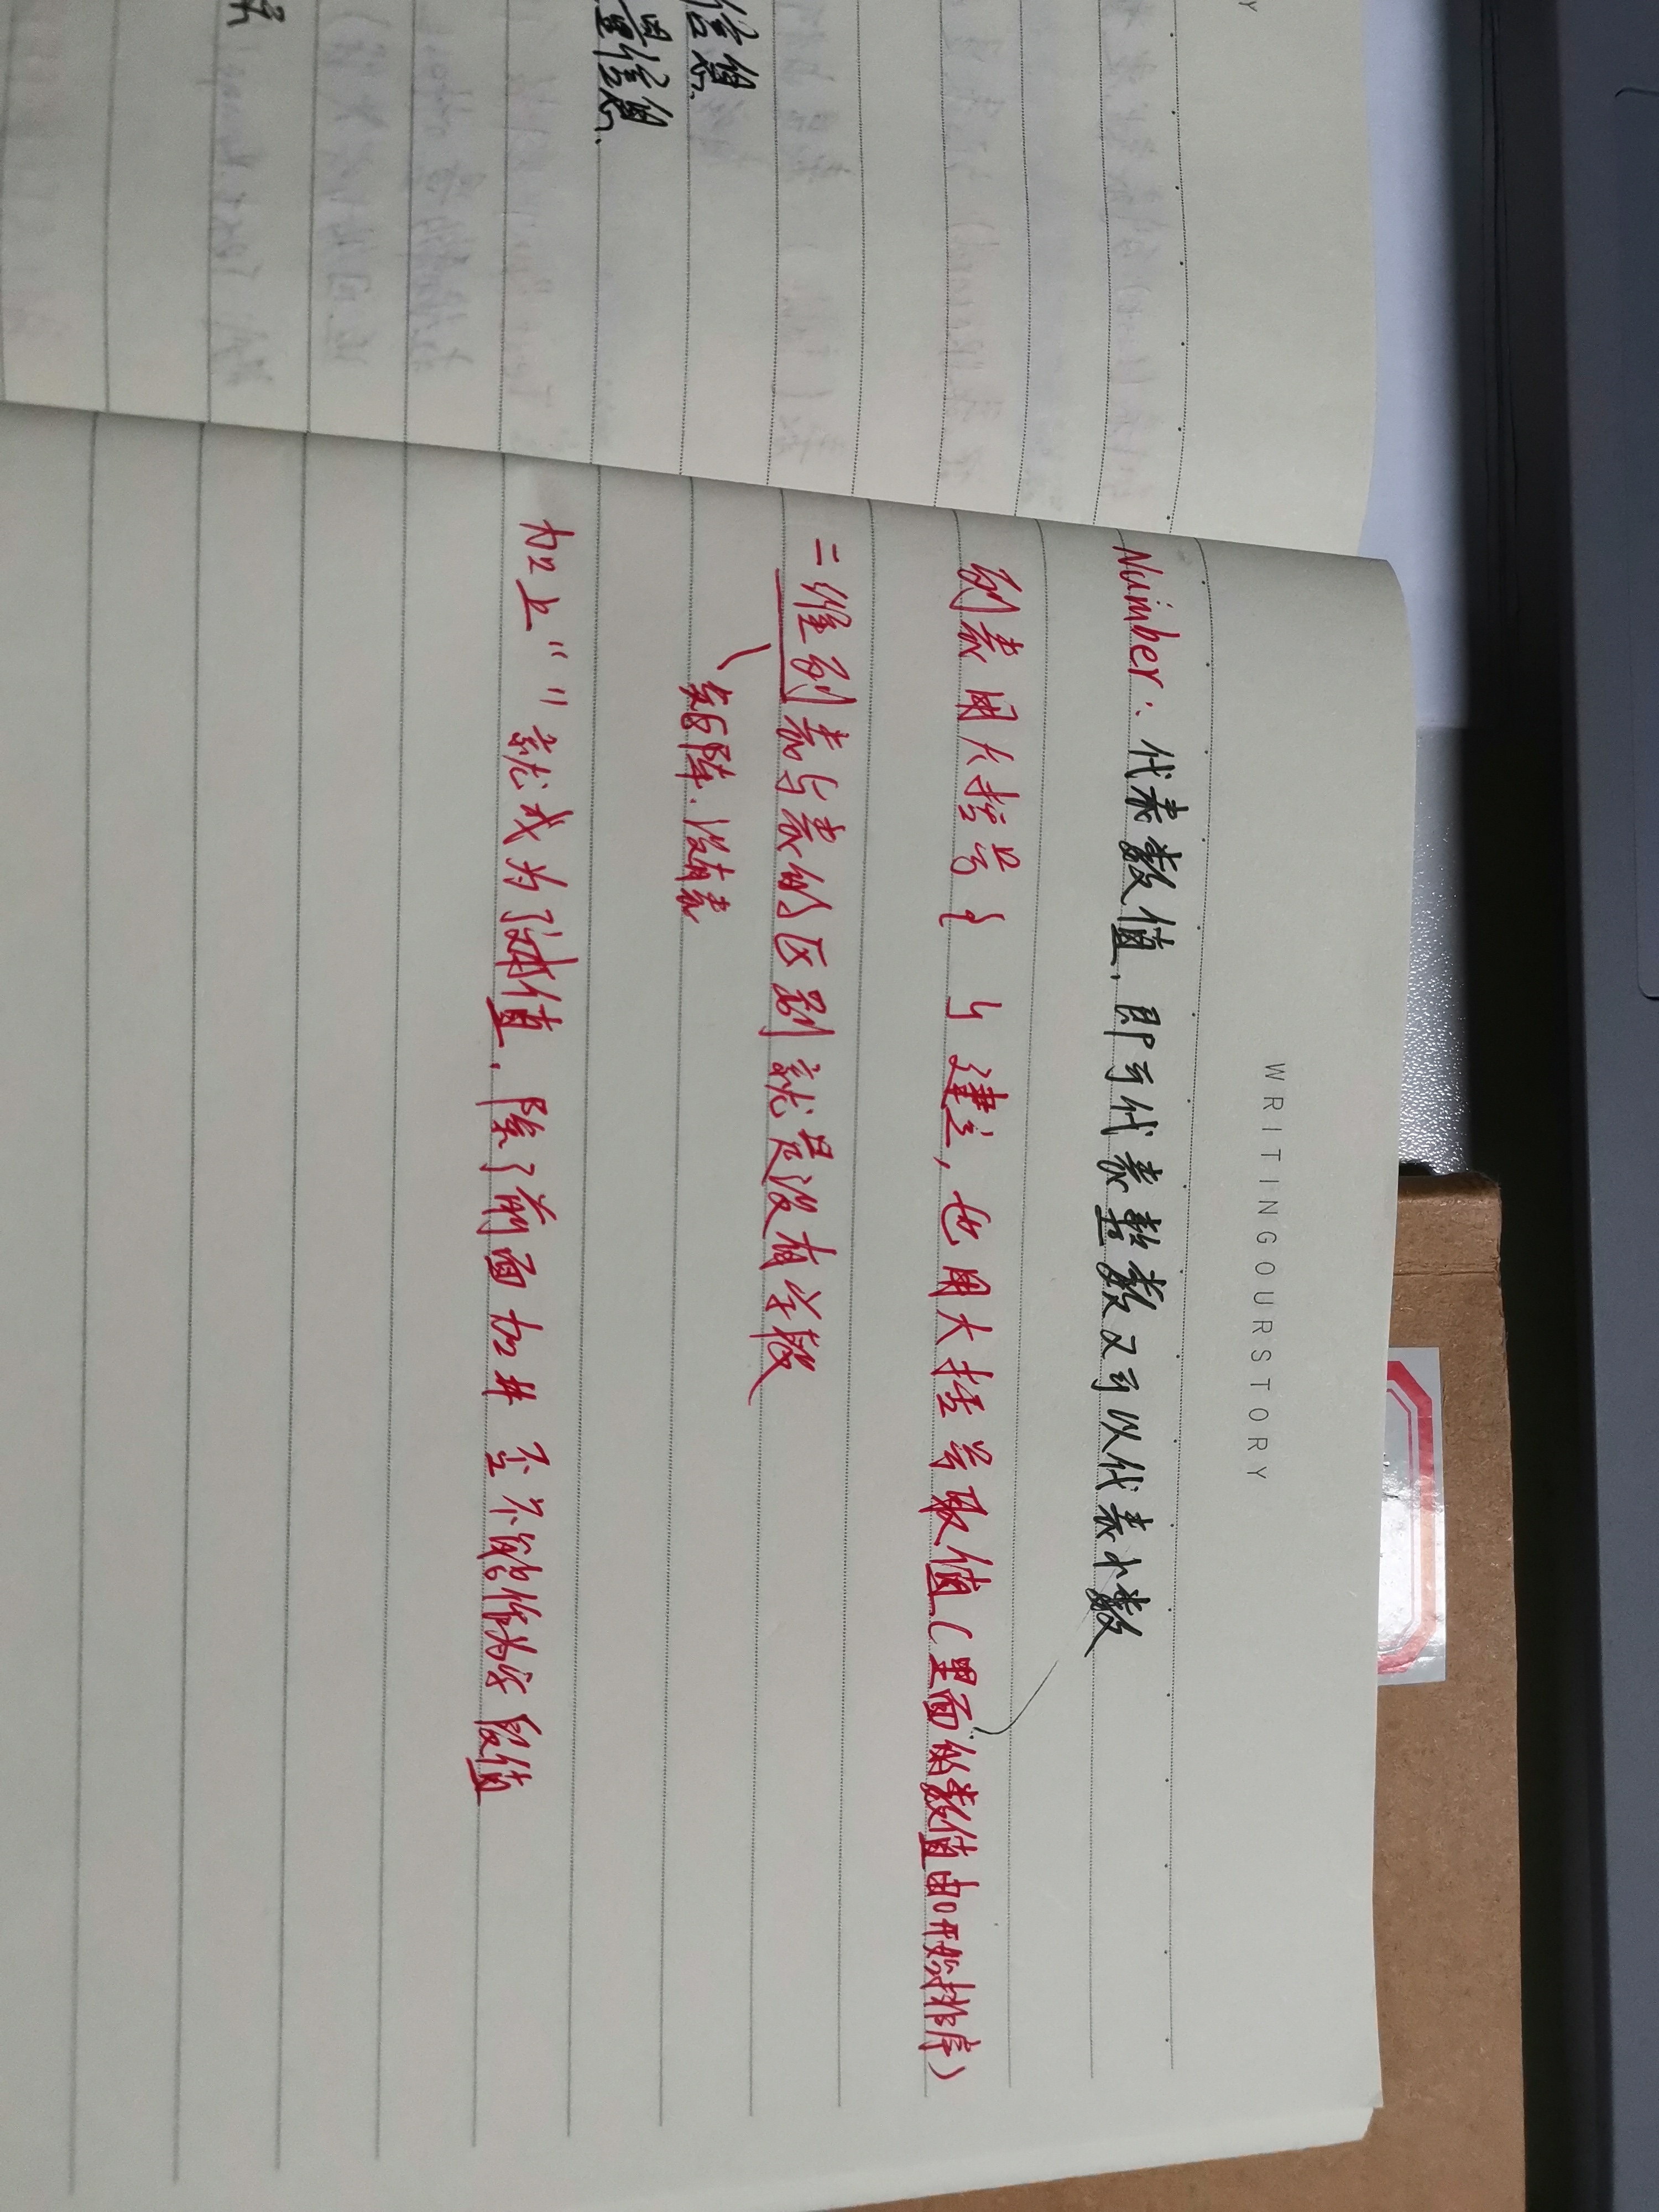 信息
量信息
WRITINGOURSTORY
Number：代表数值，即可代表整数又可以代表小数
列表用大括号{ }建立，也用大括号取值（里面的数值由0开始排序）
二维列表与表的区别就是没有字段
矩阵，没有表
加上“ ”就成为了文本值，除了前面加# 不能作为字段值